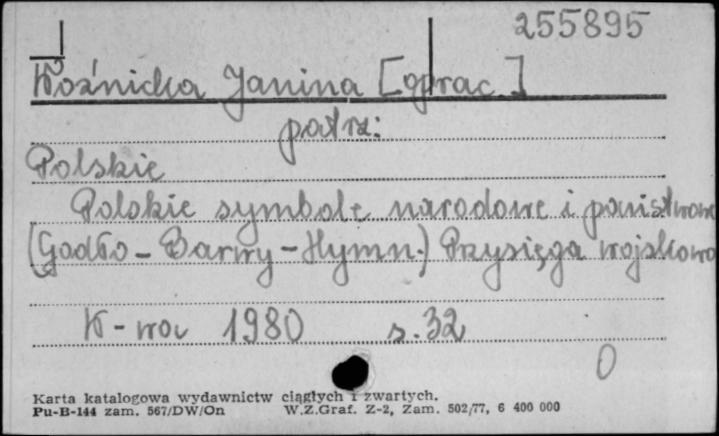 255895
Woźnicka Janina [oprac.]
patrz:
Polskie
Polskie symbole narodowe i państwowe
(Godło - Barwy - Hymn.) Przysięga wojskowa
W-wa 1980 s. 32
0
Karta katalogowa wydawnictw ciągłych i zwartych.
Pu-B-144 zam. 567/DW/On W.Z.Graf. Z-2, Zam. 502/77, 6 400 000